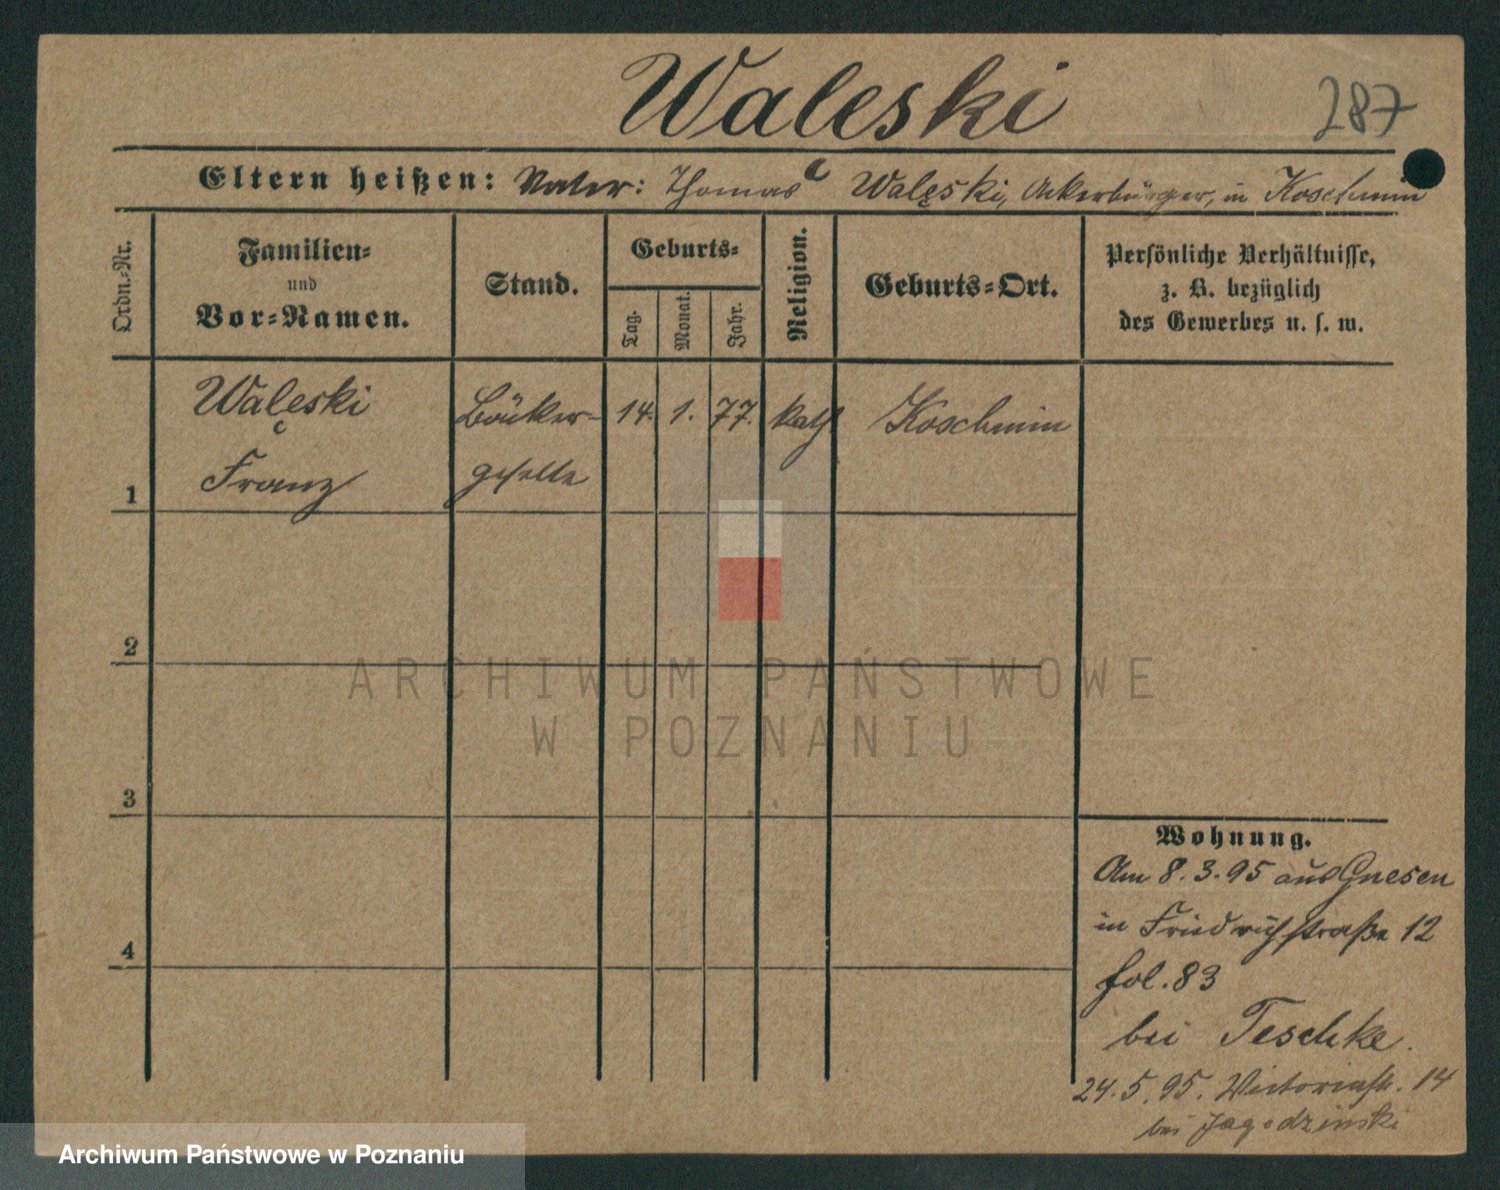 Waleski
287
Eltern heißen: Vater: Thomas Walęski, Ackerbürger, in Koschmin
Ordn.-Nr.
Familien-
und
Vor-Namen.
Stand.
Geburts-
Tag.
Monat.
Jahr.
Religion.
Geburts-Ort.
Persönliche Verhältnisse,
z. B. bezüglich
des Gewerbes u. s. w.
Walęski Bäcker- 14. 1. 77. kath Koschmin
1 Franz geselle
2
3
4
ARCHIWUM PAŃSTWOWE
W POZNANIU
Wohnung.
Am 8.3.95 aus Gnesen
in Friedrichstraße 12
fol. 83
bei Teschke.
24.5.95. Victoriastr. 14
bei Jagodzinski
Archiwum Państwowe w Poznaniu